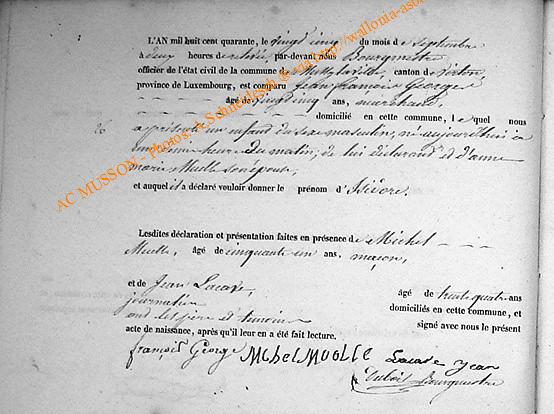 L'AN mil huit cent quarante, le vingt cinq du mois de Septembre
à deux heures de relevée, par-devant nous Bourgmestre
officier de l'état civil de la commune de Mussy la ville, canton de Virton
province de Luxembourg, est comparu Jean françois George
âgé de vingt cinq ans, maréchand,
domicilié en cette commune, lequel nous
26 a présenté un enfant du sexe masculin, né aujourd'hui à
une demie heure du matin, de lui déclarant et d'anne
marie Muolle son épouse,
et auquel il a déclaré vouloir donner le prénom d'Isidore.
Lesdites déclaration et présentation faites en présence de Michel
Muolle, âgé de cinquante un ans, maçon,
et de Jean Lacave, âgé de trente quatre ans
journalier domiciliés en cette commune, et
ont les père et témoins signé avec nous le présent
acte de naissance, après qu'il leur en a été fait lecture.
françois George Michel Muolle Lacave Jean
Bourgmestre
AC MUSSON - Photos: A. Schneidesch @ eug http://wallonia-aso